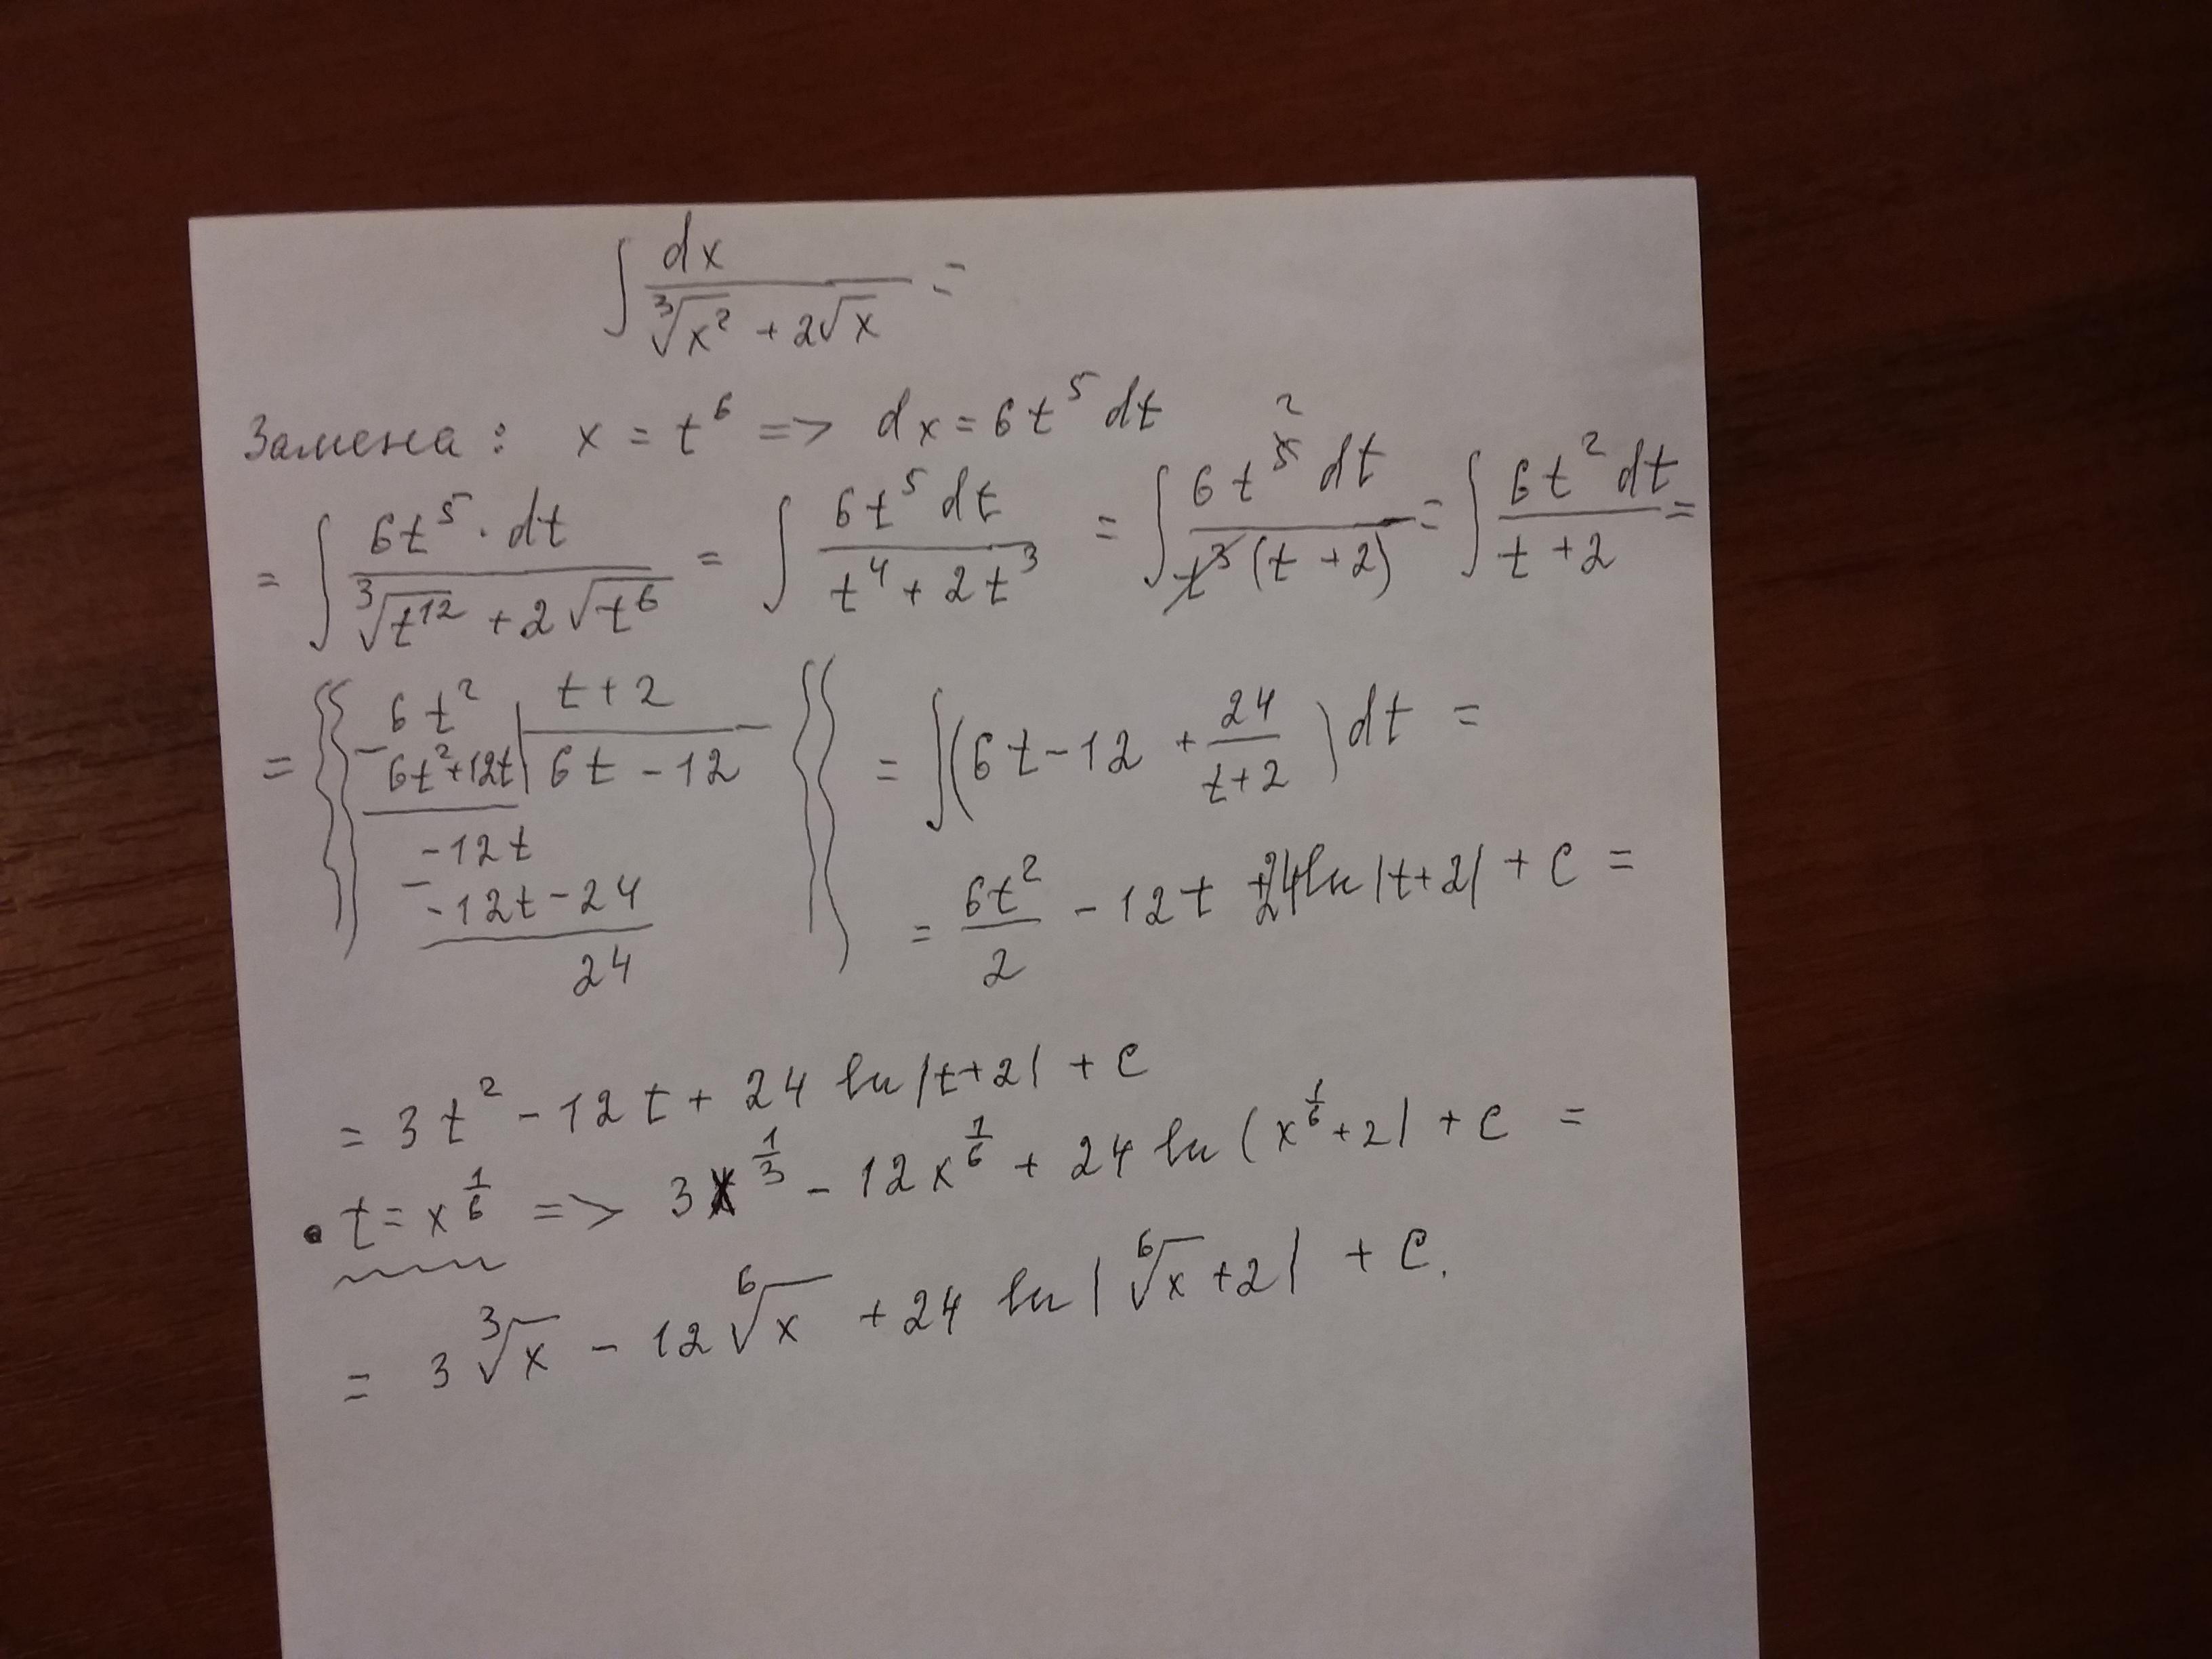 ∫ dx / (∛x² + 2√x) =
Замена: x = t⁶ => dx = 6t⁵ dt
= ∫ 6t⁵ · dt / (∛t¹² + 2√t⁶) = ∫ 6t⁵ dt / (t⁴ + 2t³) = ∫ 6t⁵ ² dt / t³(t + 2) = ∫ 6t² dt / (t + 2) =
= { 6t² | t + 2
- 6t² + 12t | 6t - 12
-12t
- -12t - 24
24 } = ∫(6t - 12 + 24/(t+2)) dt =
= 6t²/2 - 12t + 24 ln|t+2| + C =
= 3t² - 12t + 24 ln|t+2| + C
• t = x^(1/6) => 3x^(1/3) - 12x^(1/6) + 24 ln(x^(1/6) + 2| + C =
= 3∛x - 12 ⁶√x + 24 ln|⁶√x + 2| + C.